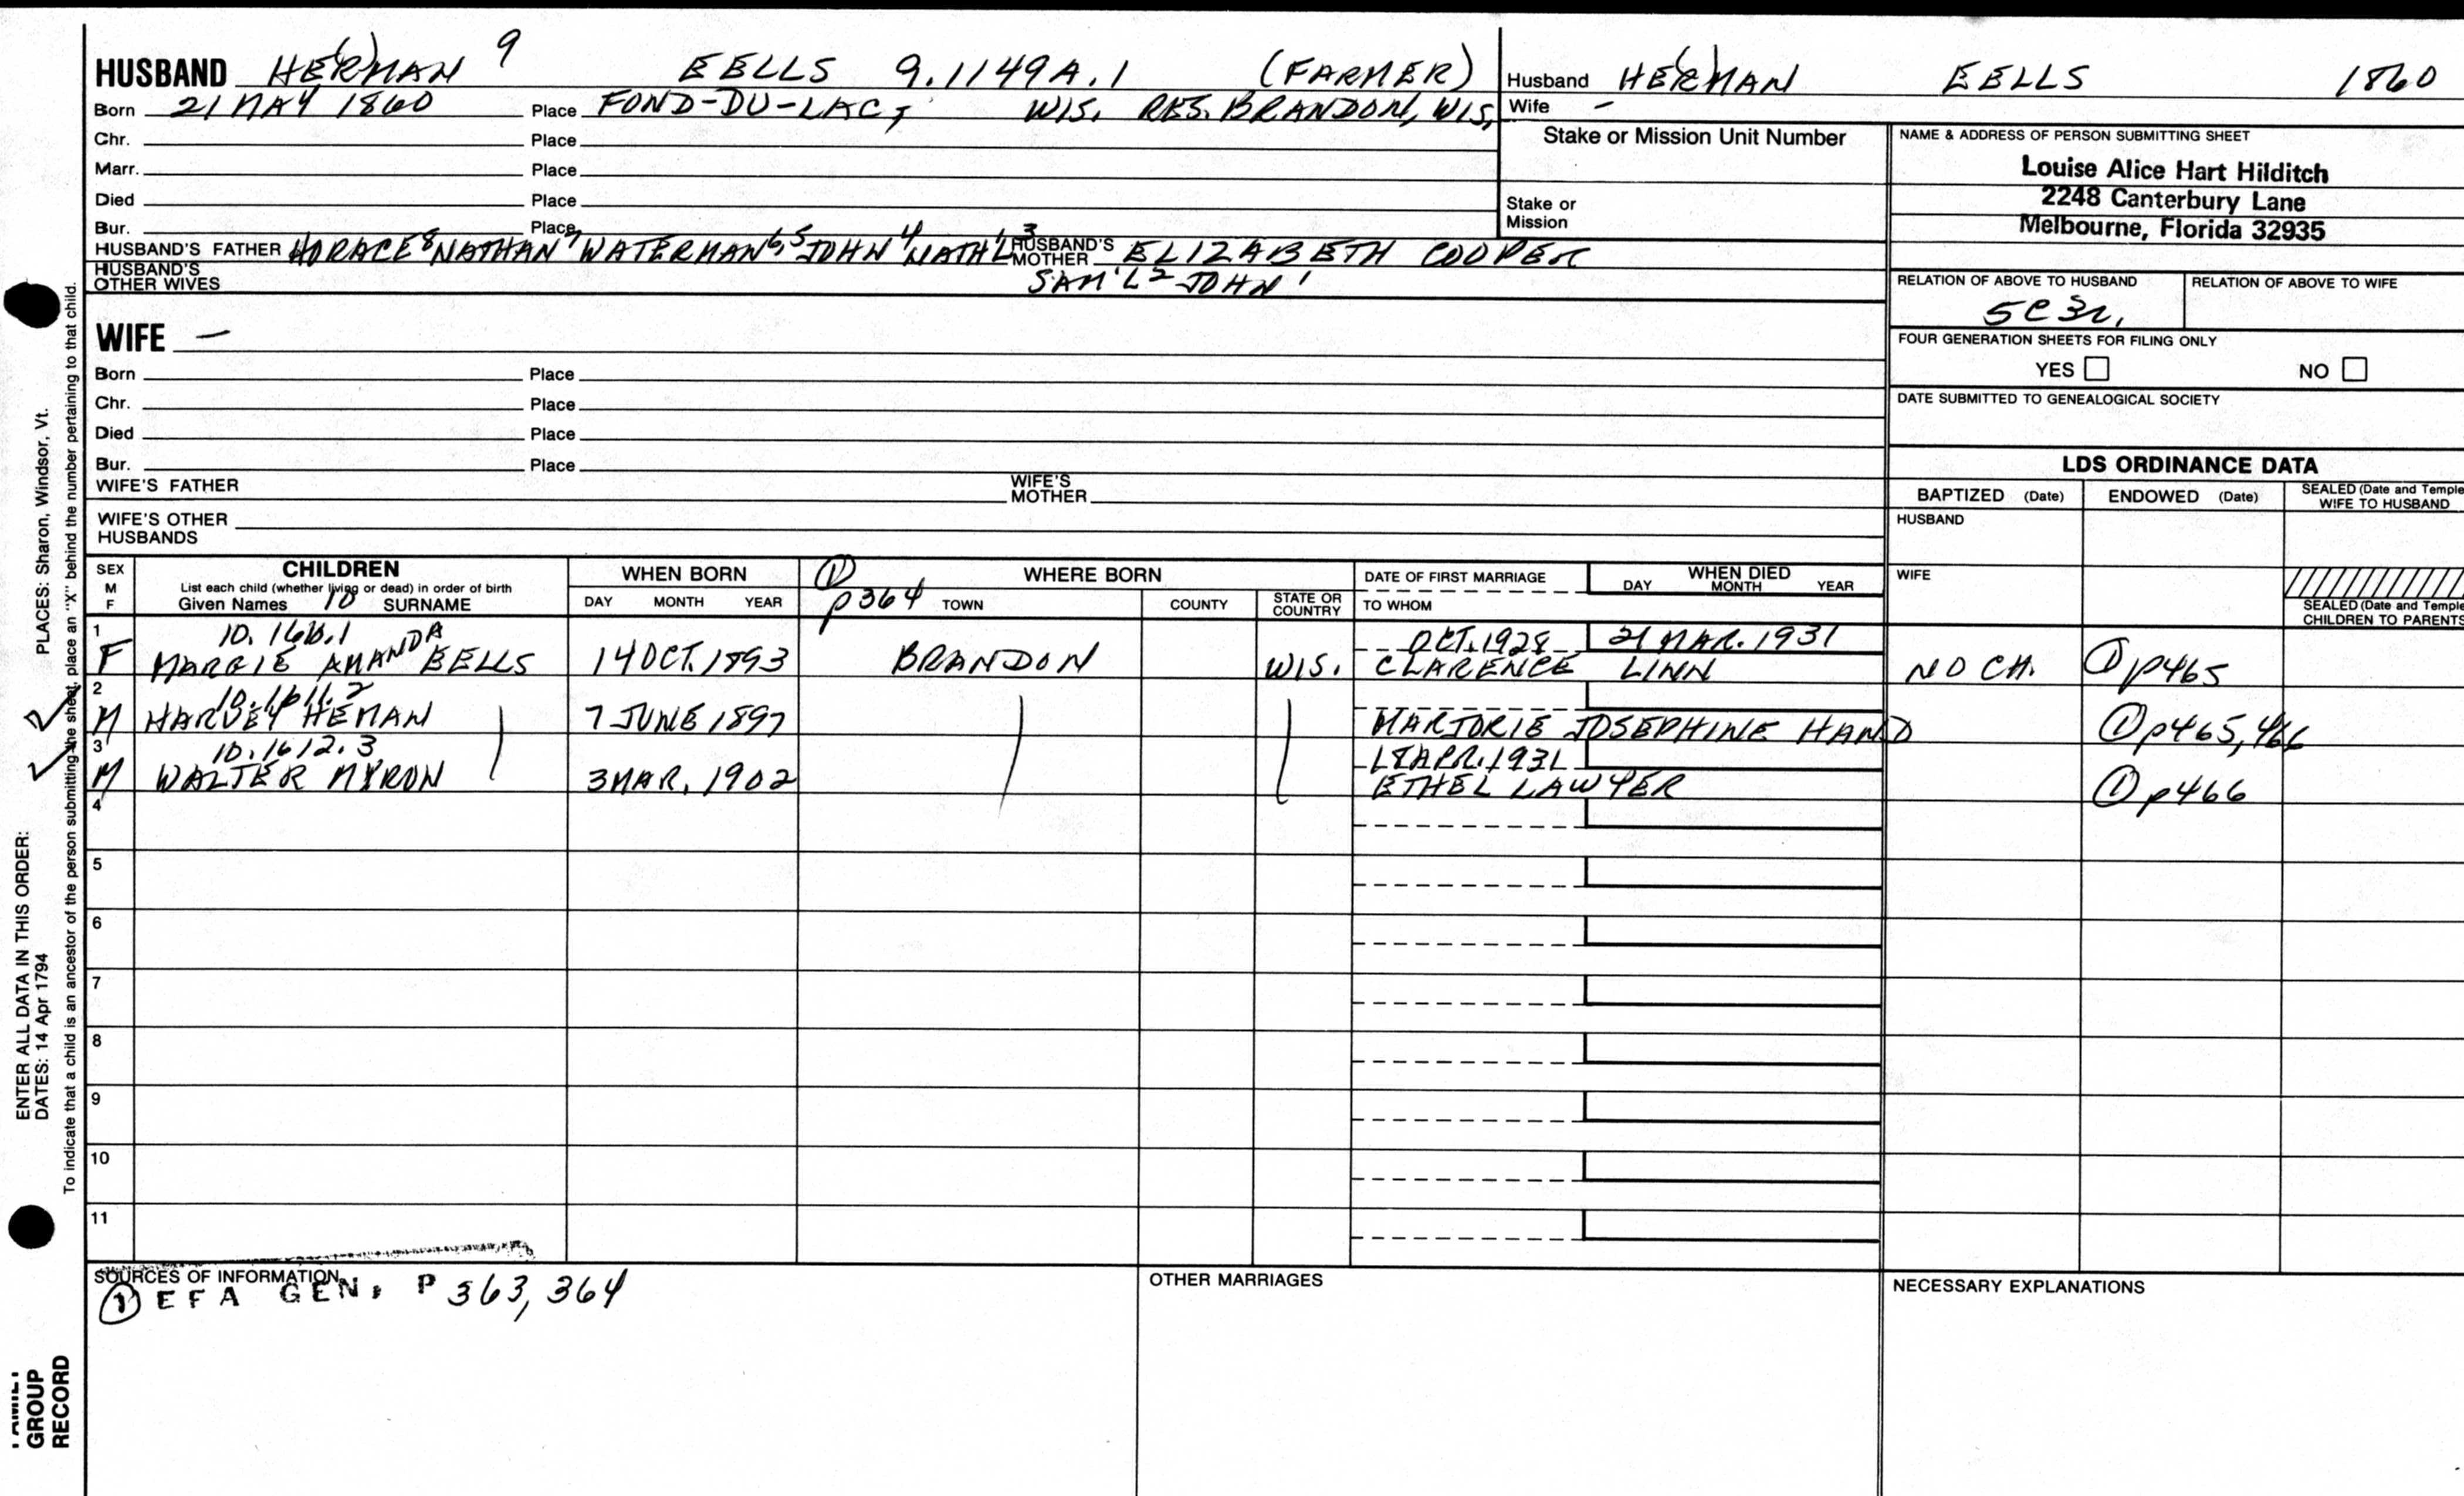 HUSBAND HE(R)MAN 9 EELLS 9.1149A.1 (FARMER)
Born 21 MAY 1860 Place FOND-DU-LAC, WIS. RES. BRANDON, WIS,
Chr. Place
Marr. Place
Died Place
Bur. Place
HUSBAND'S FATHER HORACE 8 NATHAN 7 WATERMAN 6,5 JOHN 4 NATH'L 3 HUSBAND'S MOTHER ELIZABETH COOPER
HUSBAND'S OTHER WIVES SAM'L 2 JOHN 1
Husband HE(R)MAN EELLS 1860
Wife –
Stake or Mission Unit Number
Stake or Mission
NAME & ADDRESS OF PERSON SUBMITTING SHEET
Louise Alice Hart Hilditch
2248 Canterbury Lane
Melbourne, Florida 32935
RELATION OF ABOVE TO HUSBAND RELATION OF ABOVE TO WIFE
5C3r,
FOUR GENERATION SHEETS FOR FILING ONLY
YES NO
DATE SUBMITTED TO GENEALOGICAL SOCIETY
WIFE –
Born Place
Chr. Place
Died Place
Bur. Place
WIFE'S FATHER WIFE'S MOTHER
WIFE'S OTHER HUSBANDS
LDS ORDINANCE DATA
BAPTIZED (Date) ENDOWED (Date) SEALED (Date and Temple
WIFE TO HUSBAND
HUSBAND
WIFE
SEALED (Date and Temple
CHILDREN TO PARENTS
SEX M F CHILDREN WHEN BORN ① WHERE BORN DATE OF FIRST MARRIAGE WHEN DIED
List each child (whether living or dead) in order of birth
Given Names 10 SURNAME DAY MONTH YEAR p364 TOWN COUNTY STATE OR COUNTRY TO WHOM DAY MONTH YEAR
1 10.1611.1 OCT. 1928 21 MAR. 1931
F MARGIE AMANDA EELLS 14 OCT. 1893 BRANDON WIS. CLARENCE LINN NO CH. ① p465
2 10.1611.2
M HARVEY HEMAN 7 JUNE 1897 MARJORIE JOSEPHINE HAND ① p465,466
3 10.1612.3 18 APR. 1931
M WALTER MYRON 3 MAR. 1902 ETHEL LAWYER ① p466
4
5
6
7
8
9
10
11
SOURCES OF INFORMATION
① EFA GEN. P 363, 364
OTHER MARRIAGES
NECESSARY EXPLANATIONS
PLACES: Sharon, Windsor, Vt.
To indicate that a child is an ancestor of the person submitting the sheet, place an "X" behind the number pertaining to that child.
ENTER ALL DATA IN THIS ORDER:
DATES: 14 Apr 1794
GROUP
RECORD